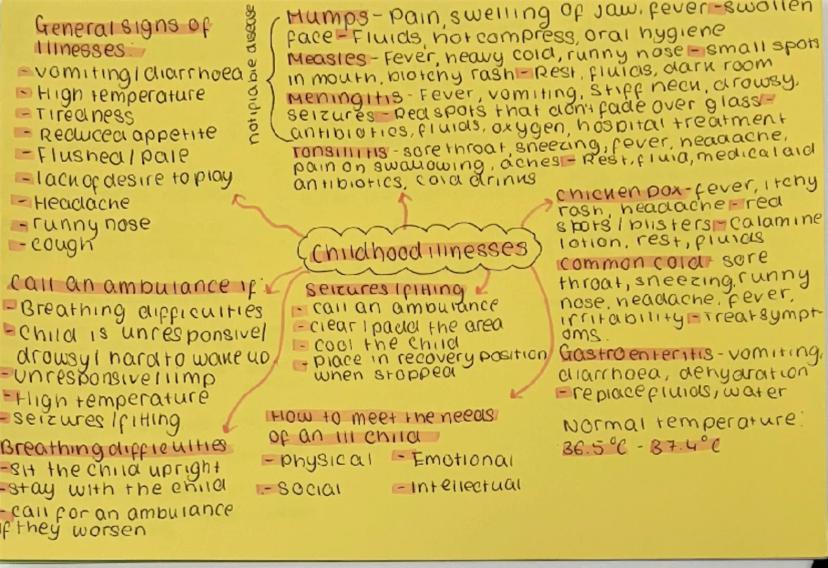 General signs of
illnesses:
- vomiting/diarrhoea
- High temperature
- Tiredness
- Reduced appetite
- Flushed/pale
- lack of desire to play
- Headache
- runny nose
- cough
notifiable disease
Mumps - Pain, swelling of jaw, fever - swollen
face - Fluids, hot compress, oral hygiene
Measles - Fever, heavy cold, runny nose - small spots
in mouth, blotchy rash - Rest, fluids, dark room
Meningitis - Fever, vomiting, stiff neck, drowsy,
seizures - Red spots that don't fade over glass -
antibiotics, fluids, oxygen, hospital treatment
Tonsilitis - sore throat, sneezing, fever, headache,
pain on swallowing, aches - Rest, fluid, medical aid
antibiotics, cold drinks
Childhood illnesses
chicken pox - fever, itchy
rash, headache - red
spots/blisters - Calamine
lotion, rest, fluids
common cold - sore
throat, sneezing, runny
nose, headache, fever,
irritability - Treat sympt-
oms.
Gastroenteritis - vomiting,
diarrhoea, dehydration
- replace fluids, water
Normal temperature:
36.5°C - 37.4°C
Call an ambulance if:
- Breathing difficulties
- Child is unresponsive/
drowsy/hard to wake up
- unresponsive/limp
- High temperature
- seizures/fitting
Seizures/fitting
- call an ambulance
- clear/padd the area
- cool the child
- place in recovery position
when stopped
Breathing difficulties
- sit the child upright
- stay with the child
- call for an ambulance
if they worsen
How to meet the needs
of an ill child
- physical - Emotional
- social - Intellectual